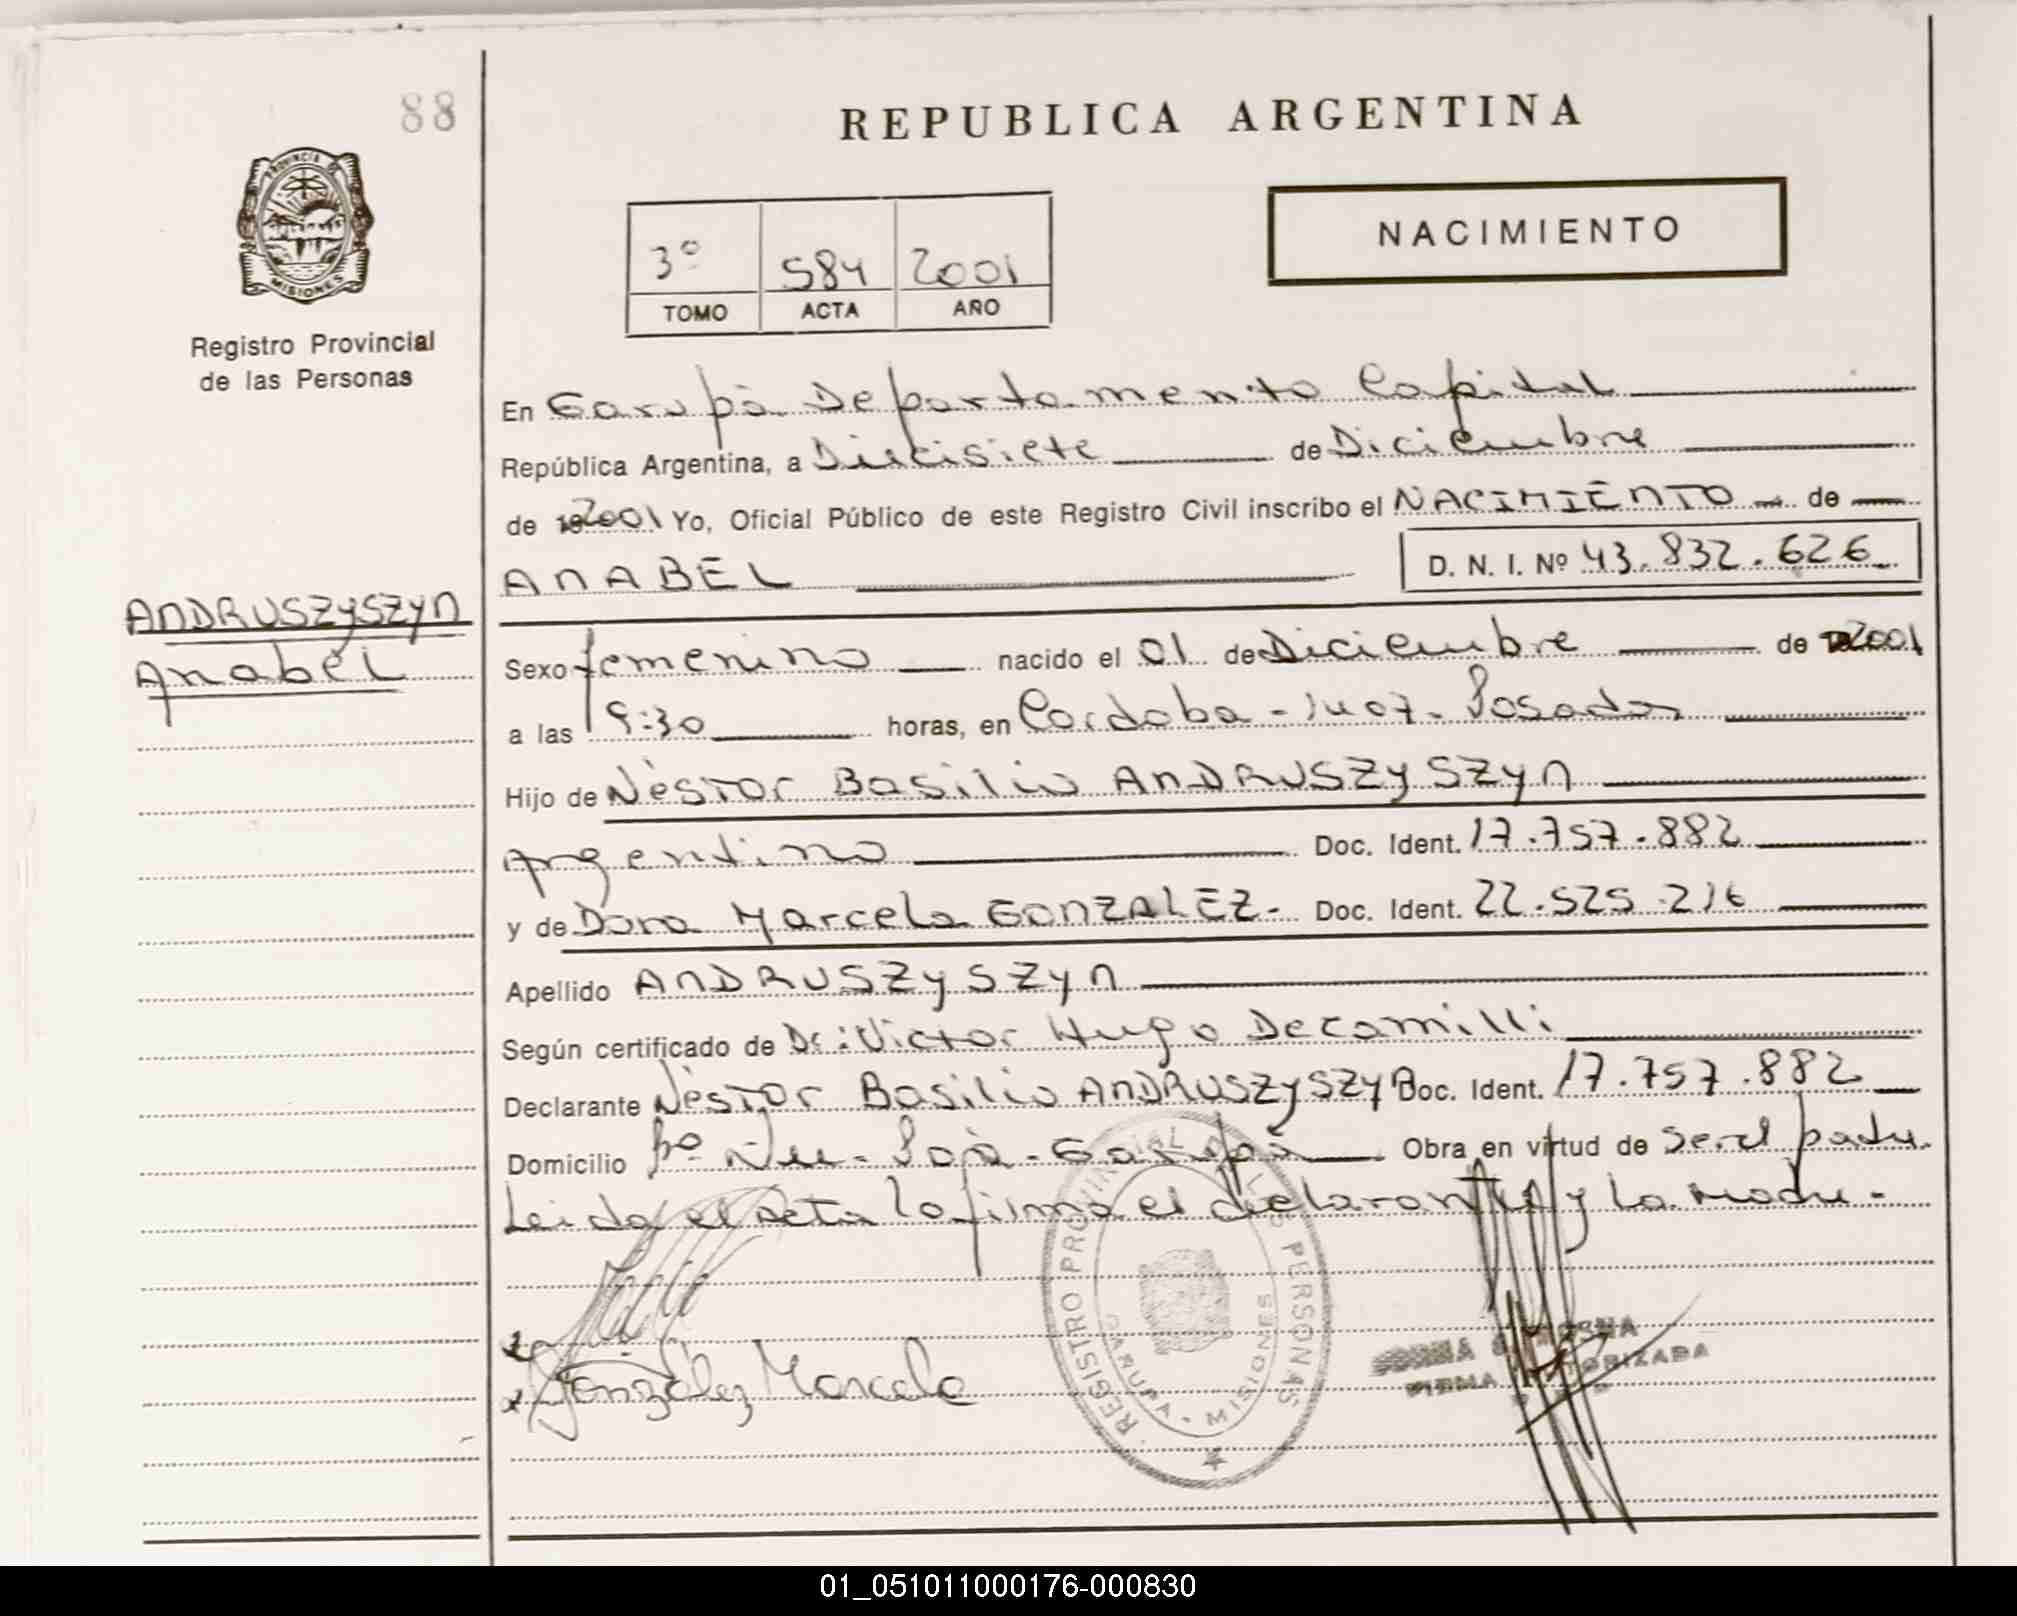 88
REPUBLICA ARGENTINA
PROVINCIA DE
MISIONES
Registro Provincial
de las Personas
NACIMIENTO
3º 584 2001
TOMO ACTA AÑO
En Garupá Departamento Capital
República Argentina, a Diecisiete de Diciembre
de 2001 Yo, Oficial Público de este Registro Civil inscribo el NACIMIENTO de
ANABEL D. N. I. Nº 43.832.626
ANDRUSZYSZYN
Anabel
Sexo femenino nacido el 01 de Diciembre de 2001
a las 19:30 horas, en Cordoba - 1407. Posadas
Hijo de Nèstor Basilio ANDRUSZYSZYN
Argentino Doc. Ident. 17.757.882
y de Dora Marcela GONZALEZ- Doc. Ident. 22.525.216
Apellido ANDRUSZYSZYN
Según certificado de Dr: Victor Hugo Decamilli
Declarante Nèstor Basilio ANDRUSZYSZYN Doc. Ident. 17.757.882
Domicilio Bº Ñu - Porà - Garupá Obra en virtud de ser el padre.
Leida el acta la firma el declarante y la madre -
Gonzalez Marcela
REGISTRO PROVINCIAL DE LAS PERSONAS
GARUPA - MISIONES
FIRMA AUTORIZADA
01_051011000176-000830